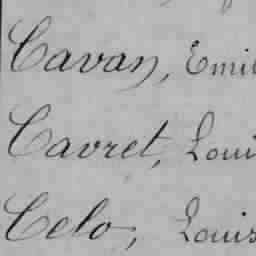 Cavan, Emil
Cavret, Loui
Celo, Louis